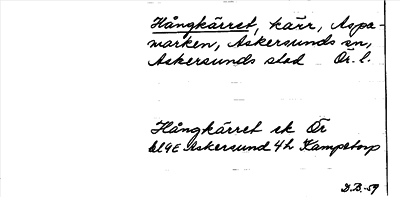 Hångkärret, kärr, Aspa-
marken, Askersunds sn,
Askersunds stad Ör. l.
Hångkärret ek Ör
Askersund 4h Kampetorp
D.B. -59